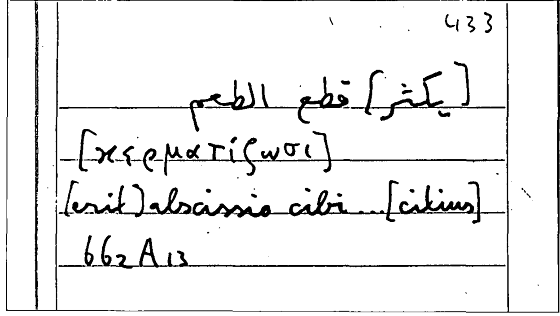 433
[يكثر] قطع الطعم
[κερματίζωσι]
[erit] abscissio cibi...[citius]
662A13